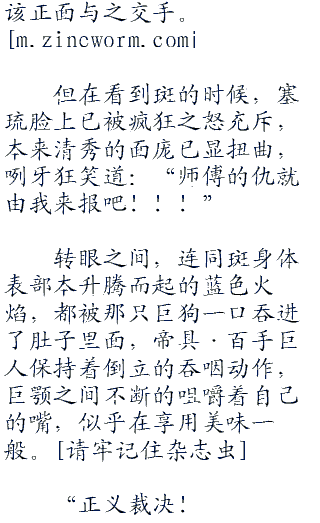 该正面与之交手。
[m.zincworm.com]
但在看到斑的时候，塞
琉脸上已被疯狂之怒充斥，
本来清秀的面庞已显扭曲，
咧牙狂笑道：“师傅的仇就
由我来报吧！！！”
转眼之间，连同斑身体
表部本升腾而起的蓝色火
焰，都被那只巨狗一口吞进
了肚子里面，帝具·百手巨
人保持着倒立的吞咽动作，
巨颚之间不断的咀嚼着自己
的嘴，似乎在享用美味一
般。[请牢记住杂志虫]
“正义裁决！